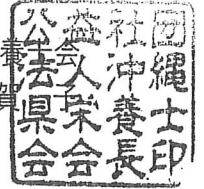 公益社団
法人沖縄
県栄養士
会会長印
養会
賀子